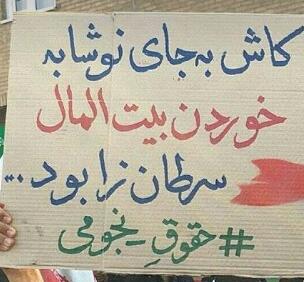 کاش به جای نوشابه
خوردن بیت المال
سرطان زا بود...
#حقوق_نجومی